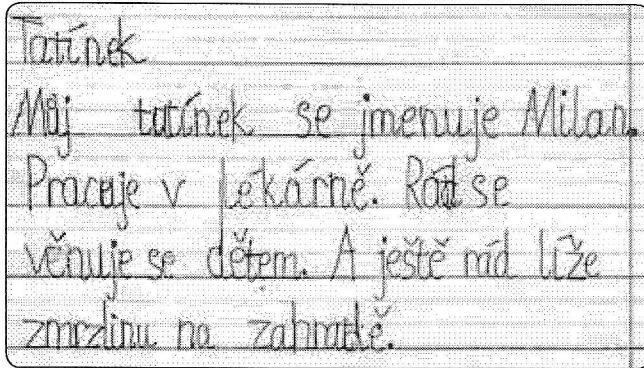 Tatínek
Můj tatínek se jmenuje Milan.
Pracuje v lékárně. Rád se
věnuje se dětem. A ještě rád líže
zmrzlinu na zahradě.